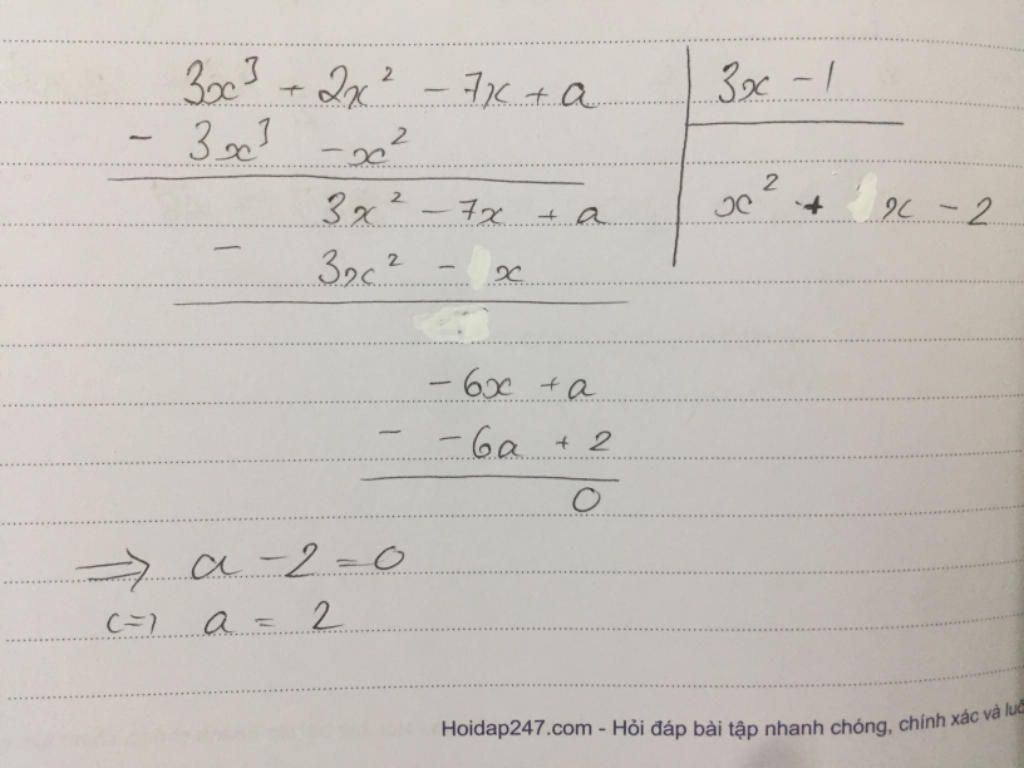 3x³ + 2x² - 7x + a
3x - 1
- 3x³ - x²
x² + x - 2
3x² - 7x + a
- 3x² - x
- 6x + a
- - 6a + 2
0
=> a - 2 = 0
<=> a = 2
Hoidap247.com - Hỏi đáp bài tập nhanh chóng, chính xác và